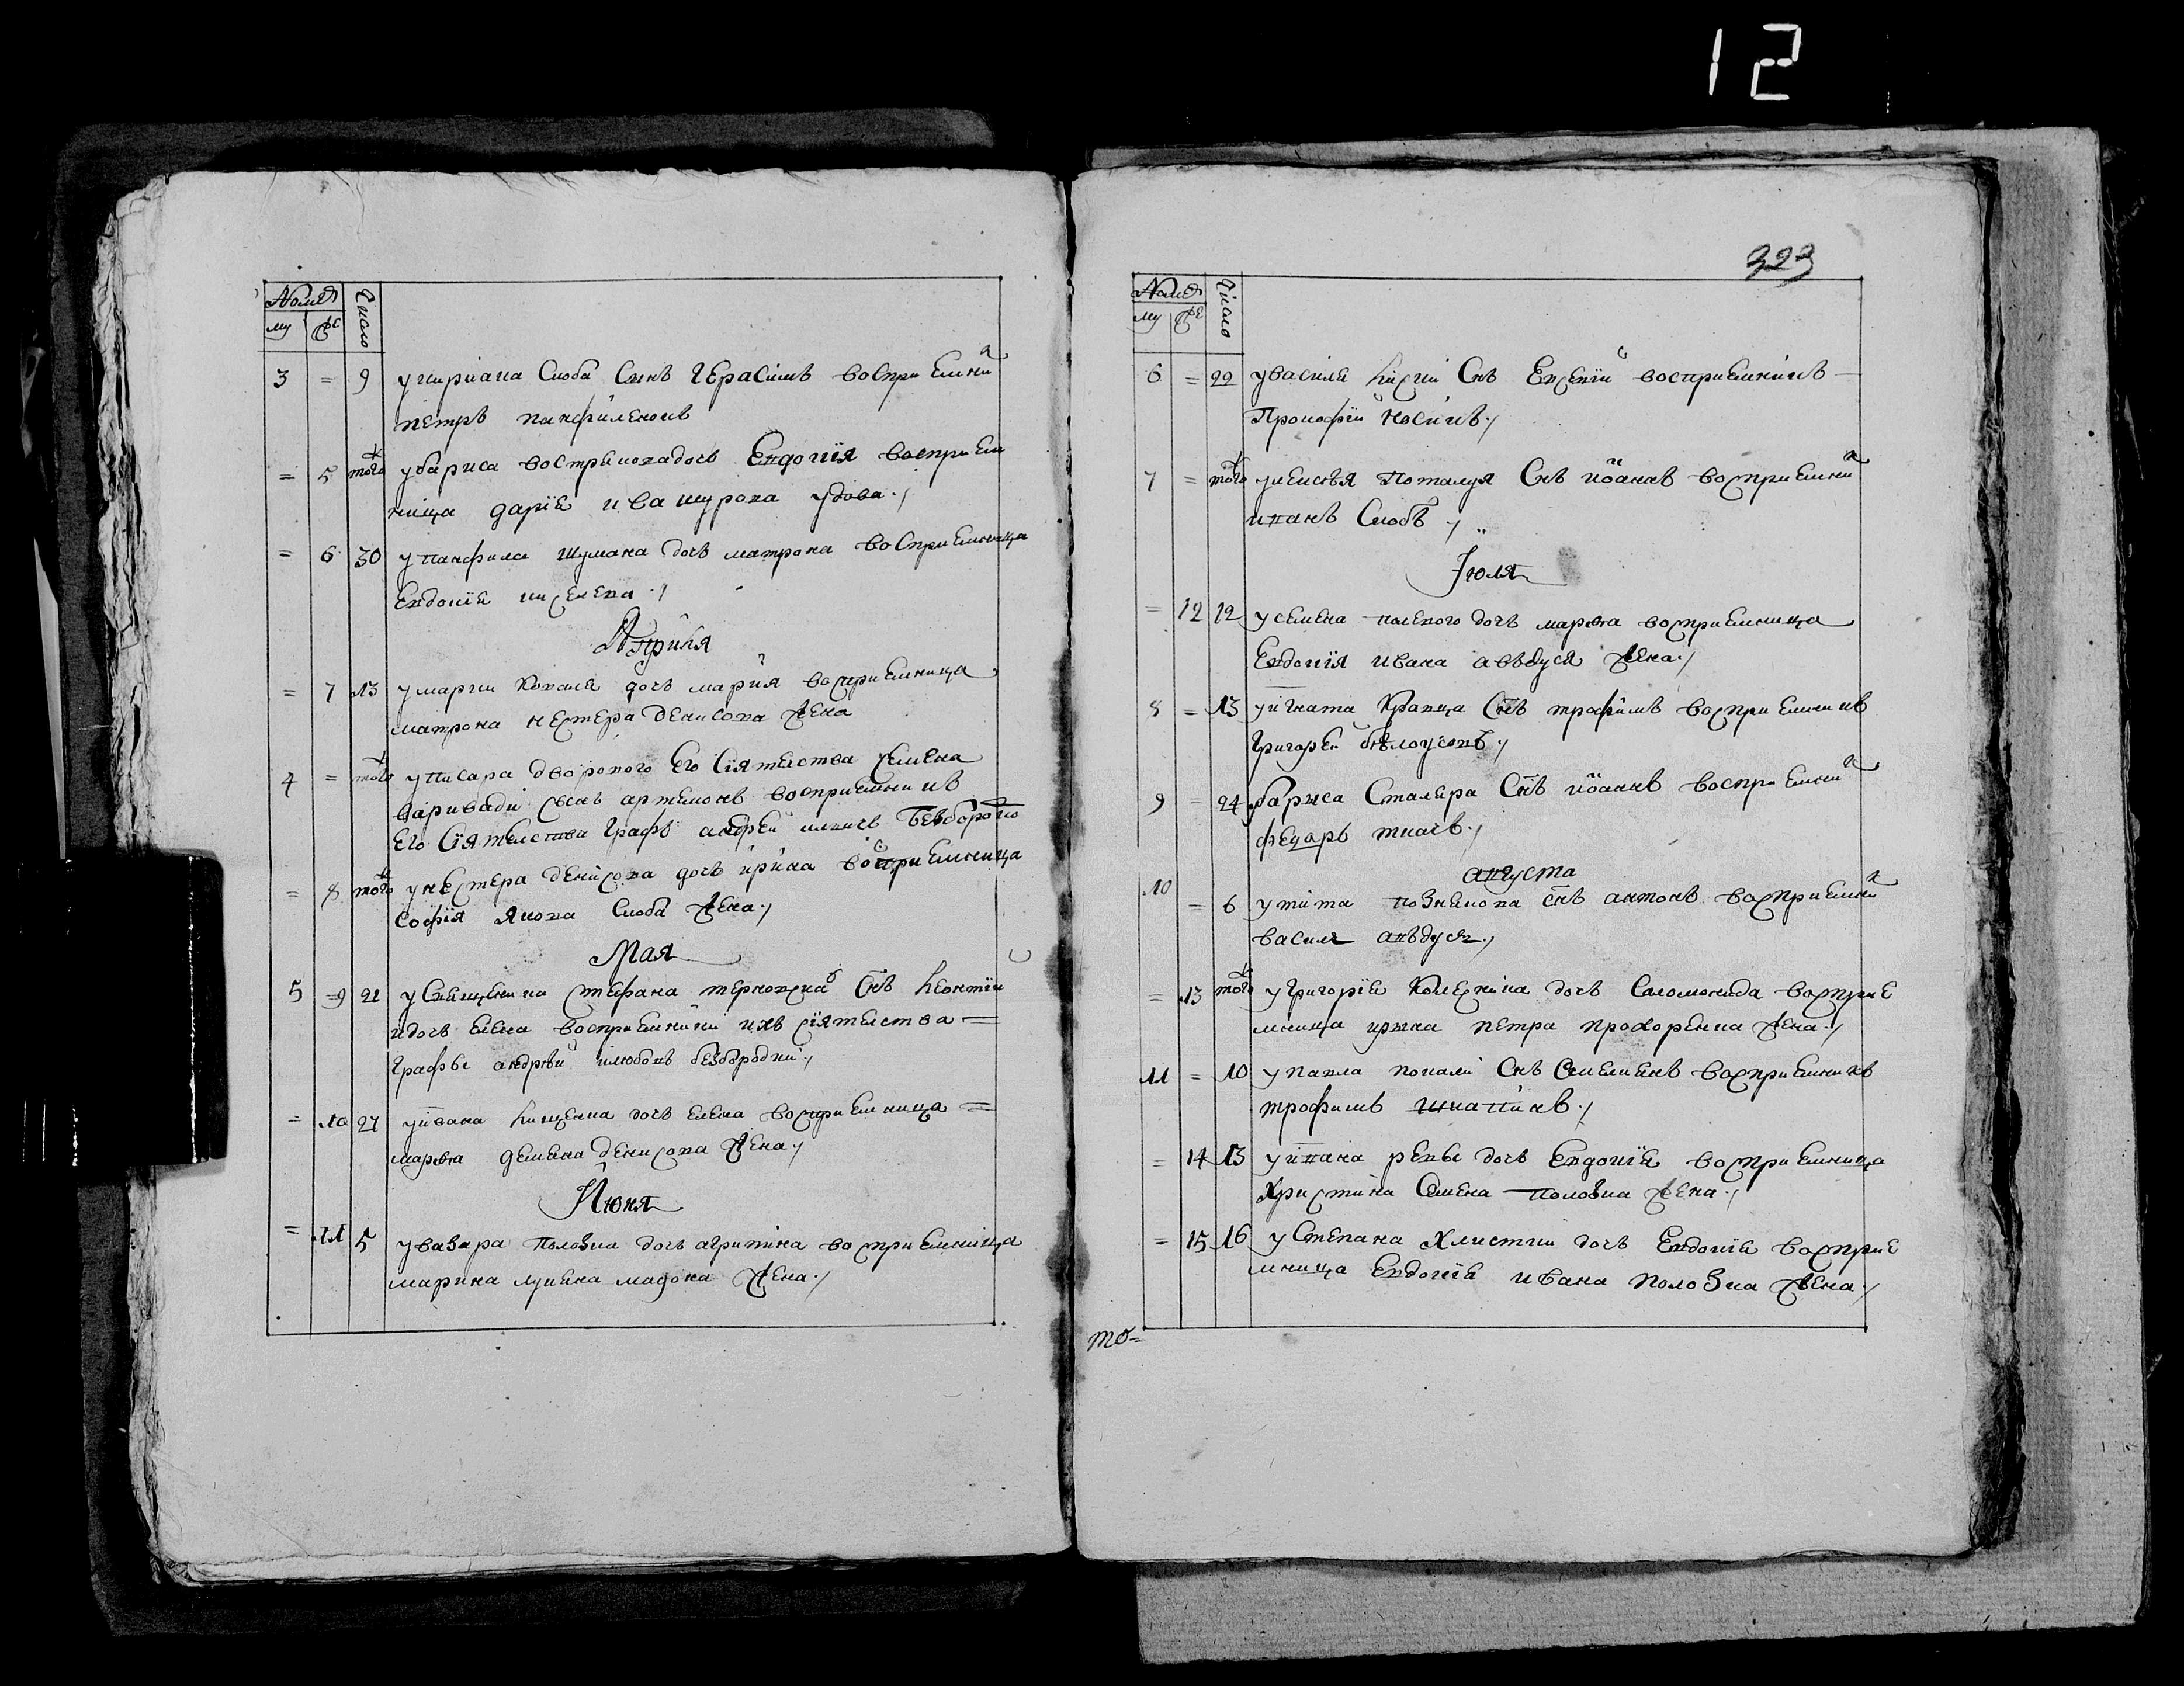 12
Числа
му
3 = 9 у кириана Скоба Снъ Герасимъ восприемник
петръ панфиленокъ
= 5 того у бариса вострикова дочь Евдокия восприем
ница дарïе ивашурова удова ./
= 6 30 у панфила шумана дочь матрона восприемница
Евдокïе киселева ./
Априля
= 7 13 у марки коваля дочь марïя восприемница
матрона нестера денисова жена
4 = того у писара дворового его сïятелства семена
сынъ артемонъ восприемникъ
его сïятелства графъ андрей илличъ безбородко
= 8 того у нестера денисова дочь ирина восприемница
софïя якова скоба жена ./
Мая
5 =9 21 у свещеника стефана Снъ леонтïи
и дочь елена восприемники ихъ сïятелства =
графы андрѣй и любовъ безбородки ./
= 10 27 у ивана кищенка дочь елена восприемница =
марѳа демяна денисова жена ./
Июня
= 11 5 у вазара половка дочь агрипина восприемница
марина жена ./
323
Числа
му
6 = 22 у василя Снъ Евсевïй восприемникъ
Прокофïи носикъ ./
7 = того Снъ иоаннъ восприемник
иванъ Скобъ ./
Iюля
= 12 12 у семена полевого дочь марѳа восприемница
Евдокïя ивана авѣдуся жена ./
8 = 13 у игната кравца Снъ трофимъ восприемникъ
григорей бѣлоусовъ ./
9 = 24 у бариса Сталяра Снъ иоаннъ восприемник
федаръ ткачъ ./
августа
10 = 6 у тита познякова снъ антонъ восприемник
василя авѣдуся ./
= 13 того у григорïе колесника дочь Саломонида восприе
мница ирына петра прохоренка жена ./
11 = 10 у павла Снъ Симеменъ восприемникъ
трофимъ ./
= 14 13 у ивана репы дочь Евдокïе восприемница
Христина Семена половка жена ./
= 15 16 у Степана дочь Евдокïе восприе
мница Евдокïе ивана половка жена ./
то=